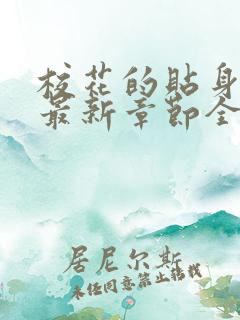 校花的贴身
最新章节全
居尼尔斯
未经同意禁止转载